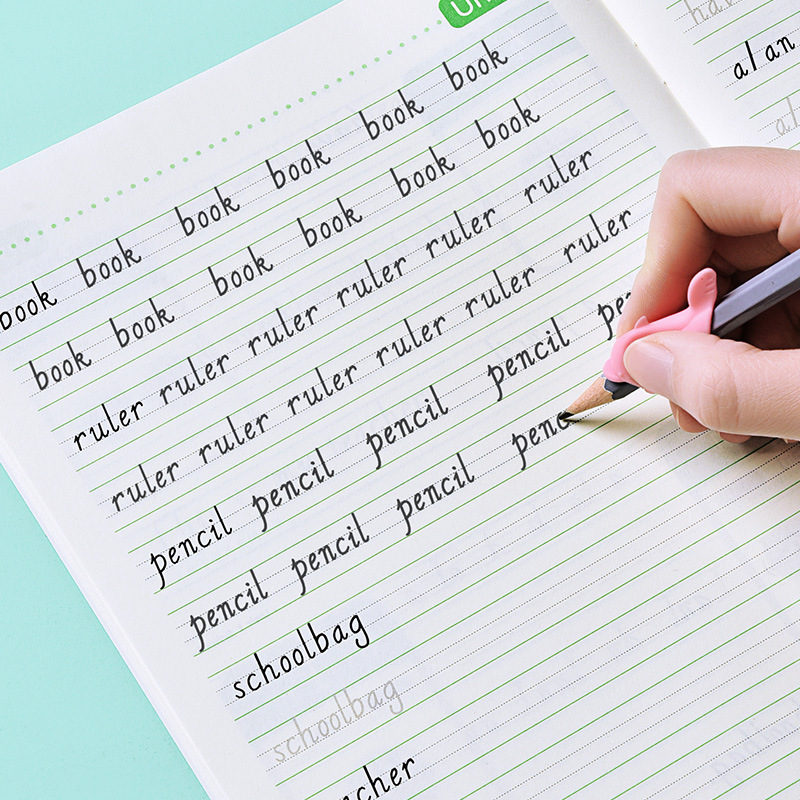 Un
book book book book book book
book book book book book book
ruler ruler ruler ruler ruler ruler
ruler ruler ruler ruler ruler ruler
pencil pencil pencil pencil pe
pencil pencil pencil penc
schoolbag
schoolbag
cher
alan
al